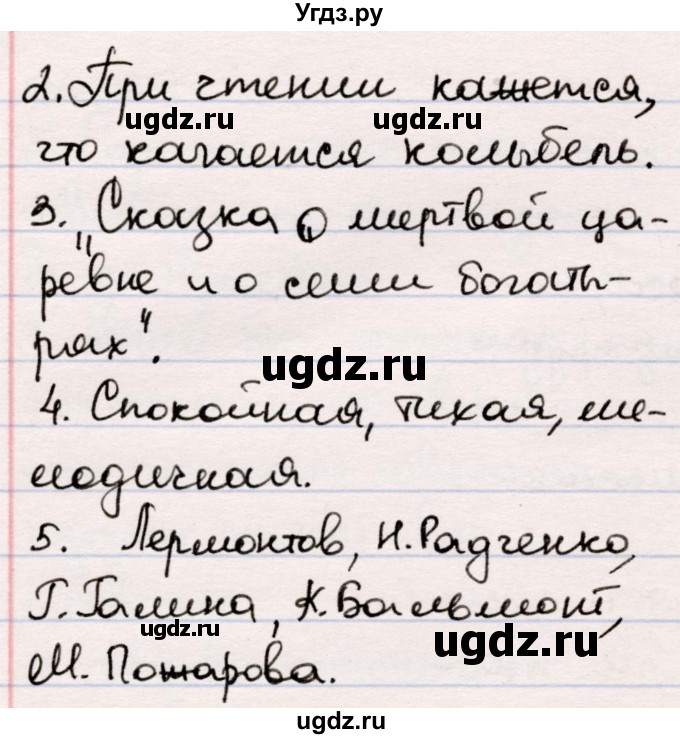 Угдз.ру
2. При чтении кажется,
ugdz.ru ugdz.ru
что качается колыбель.
3. „Сказка о мертвой ца-
ревне и о семи богаты-
рях".
ugdz.ru
4. Спокойная, тихая, ме-
лодичная.
5. Лермонтов, Н. Радченко,
Г. Галина, К. Бальмонт,
ugdz.ru ugdz.ru
М. Пожарова.
ugdz.ru